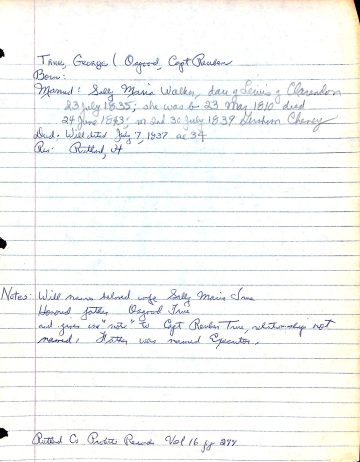 True, George ( Osgood, Capt Reuben
Born:
Married: Sally Maria Walker, dau of Lewis of Clarendon
23 July 1835; she was b. 23 May 1810 died
24 June 1843; m 2nd 30 July 1839 Gershom Cheney
Died: Will dated July 7, 1837 ae 34
Res: Rutland, Vt
Notes: Will names beloved wife Sally Maria True
Honored father Osgood True
and gives "note" to Capt Reuben True, relationship not
named. Father was named Executor.
Rutland Co Probate Records Vol 16 pg